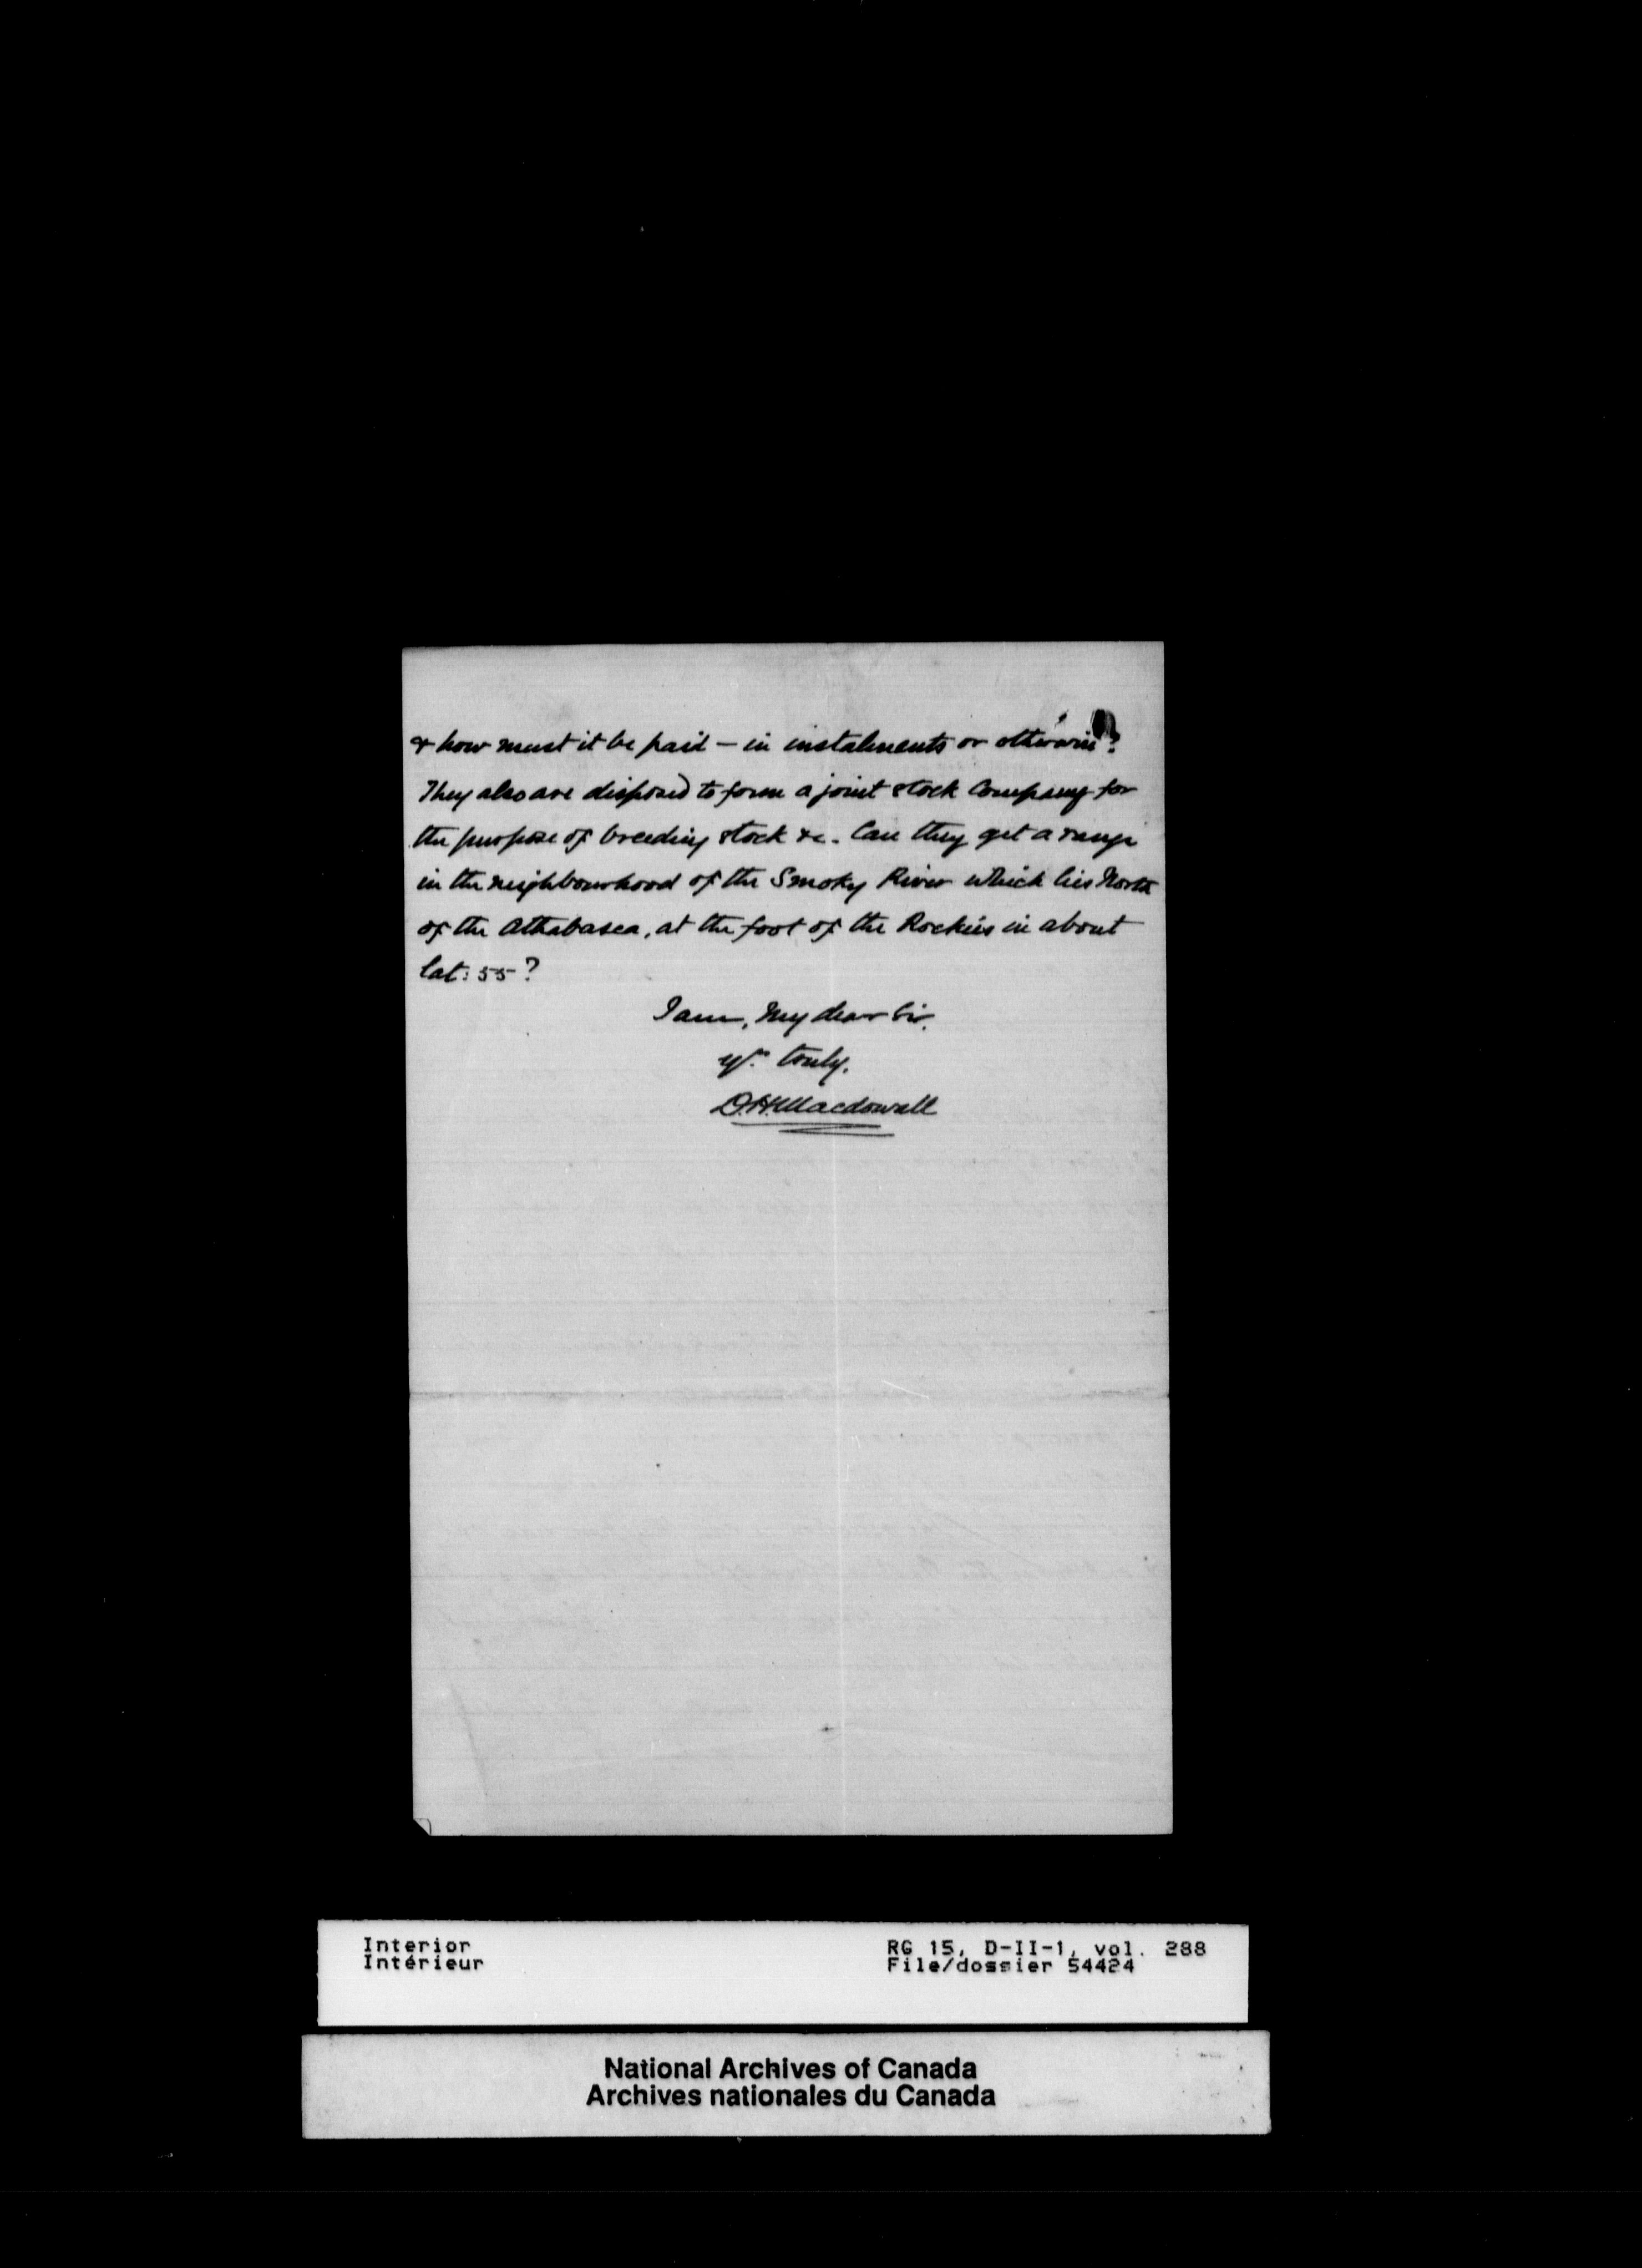 & how must it be paid – in instalments or otherwise?
They also are disposed to form a joint stock Company for
the purpose of breeding stock &c. Can they get a range
in the neighbourhood of the Smoky River which lies North
of the Athabasca, at the foot of the Rockies in about
lat: 55?
I am, My dear Sir,
yrs truly.
D.H. Macdowall
Interior
Intérieur
RG 15, D-II-1, vol. 288
File/dossier 54424
National Archives of Canada
Archives nationales du Canada